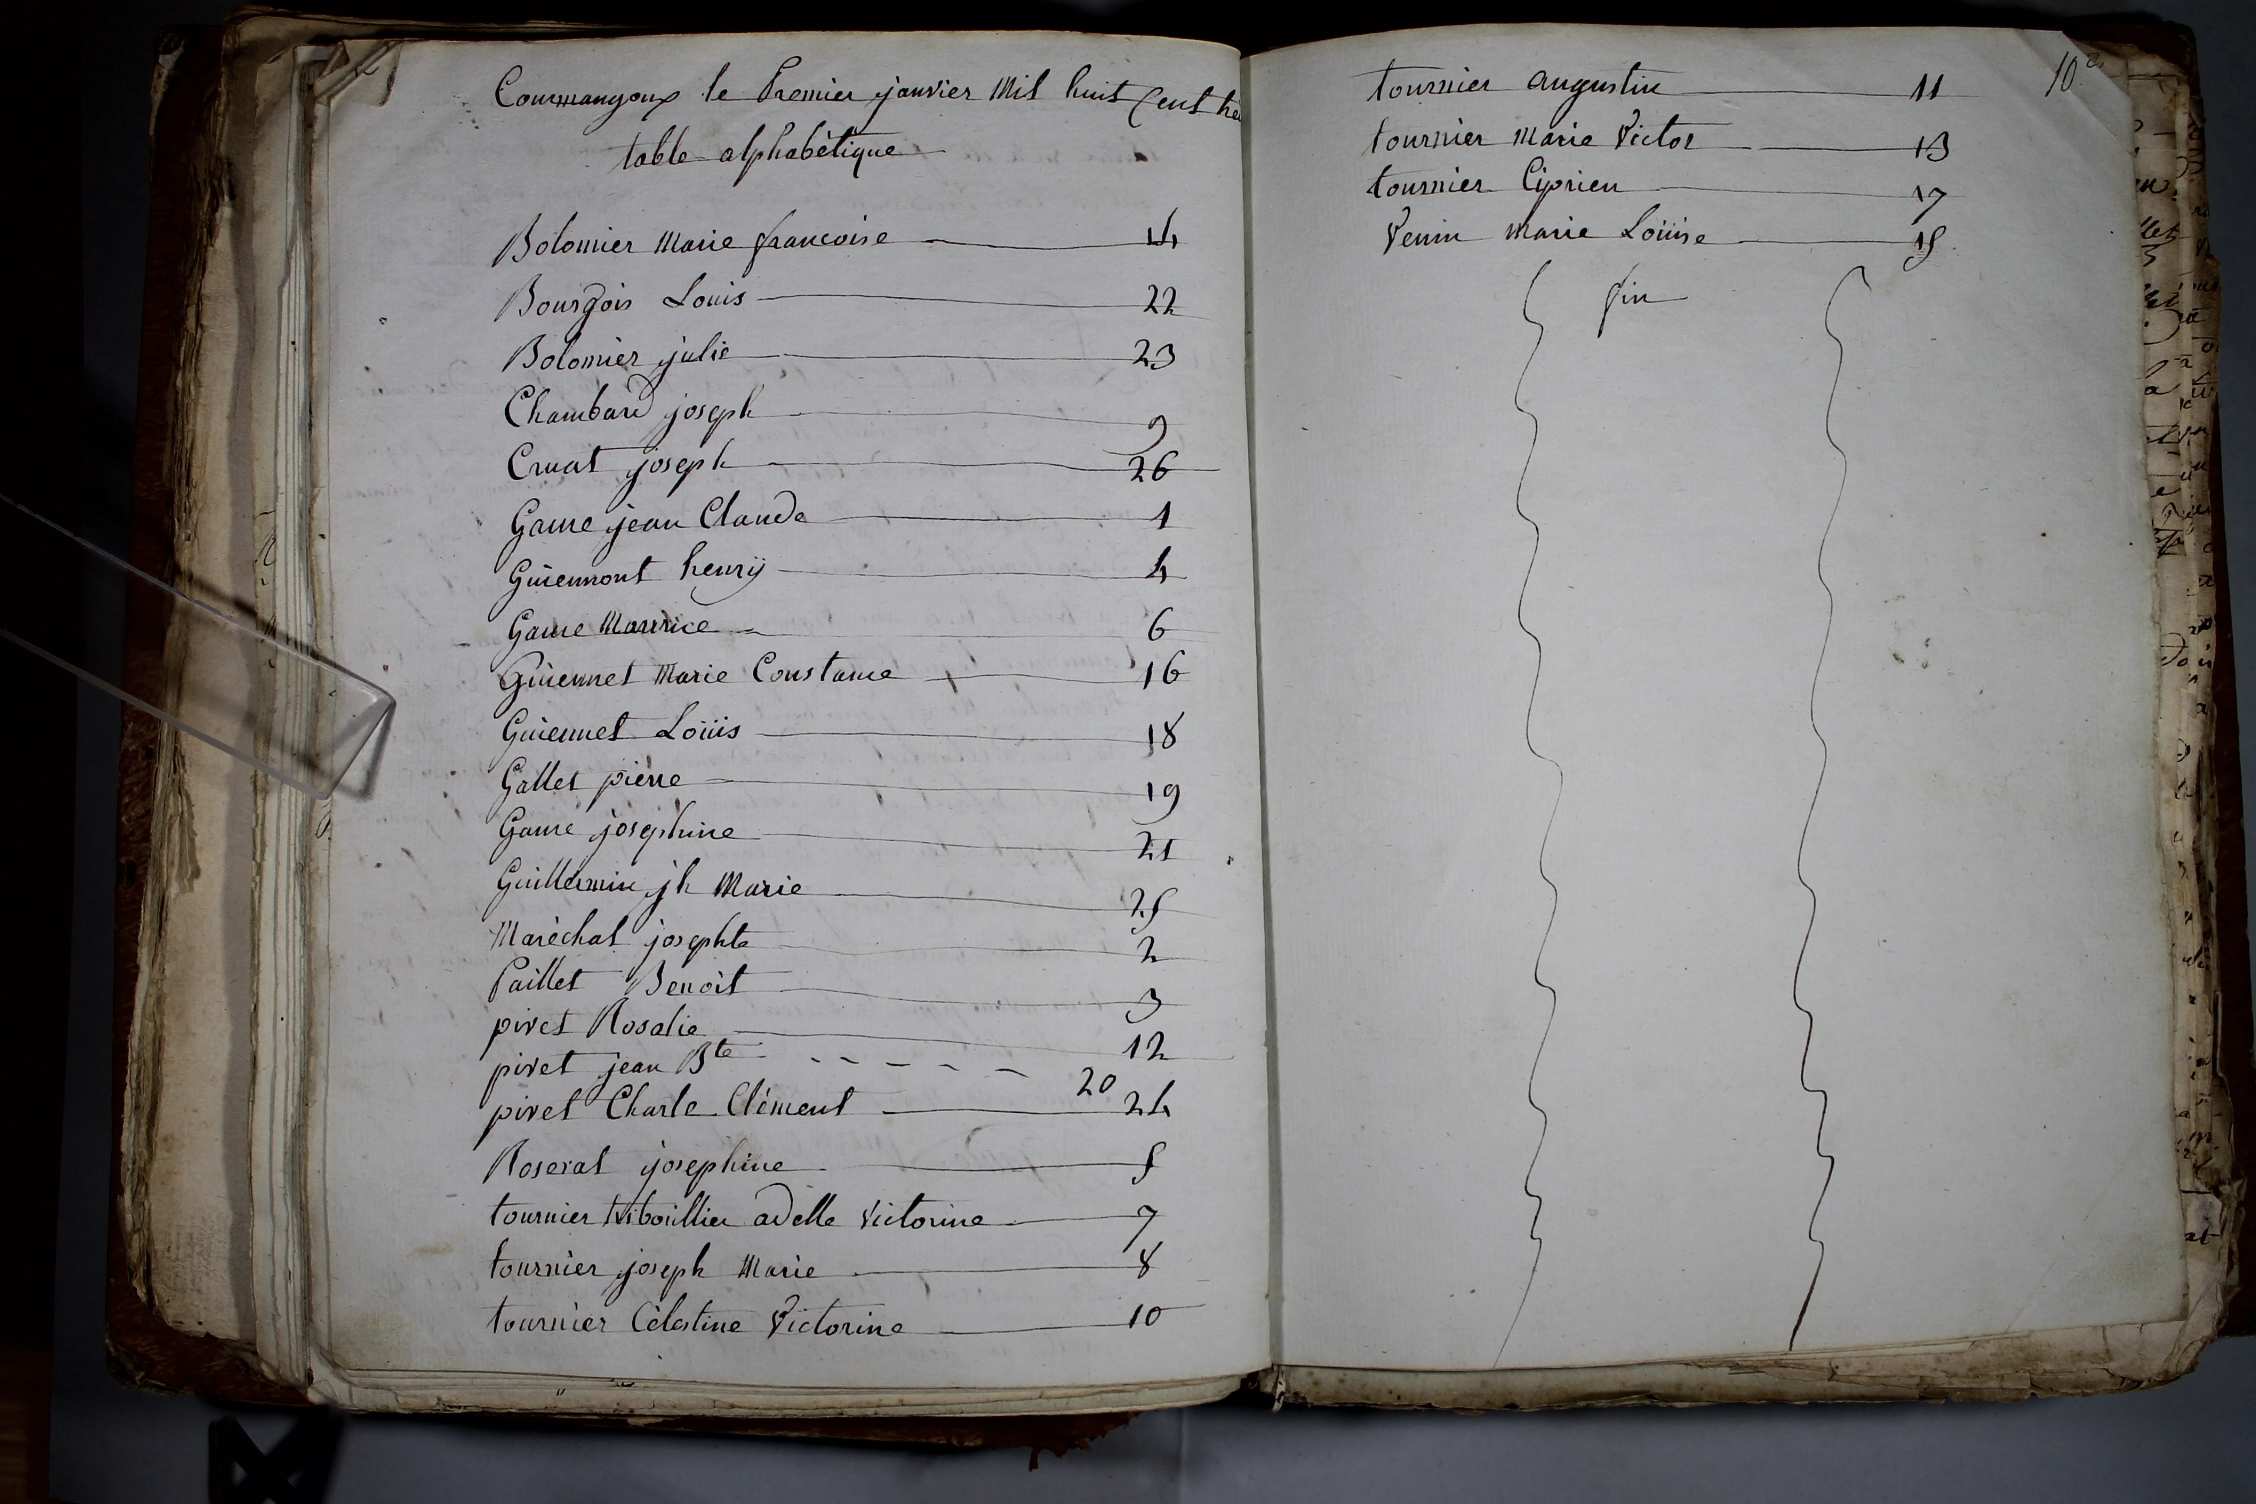 Courmangoux le Premier janvier Mil huit Cent
table alphabétique
Bolomier Marie francoise 14
Bourgois Louis 22
Bolomier julie 23
Chambard joseph 9
Cruat joseph 26
Game jean Claude 1
Guiennont henry 4
Game Maurice 6
Guiennet Marie Constance 16
Guiennet Loüis 18
Gallet pierre 19
Game josephine 21
Guillermin jh Marie 25
Maréchal josephte 2
Paillet Benoit 3
pivet Rosalie 12
pivet jean Bte 20
pivet Charle Clément 24
Roserat josephine 5
tournier adelle Victorine 7
tournier joseph Marie 8
tournier Célestine Victorine 10
10
tournier augustin 11
tournier Marie Victor 13
tournier Ciprien 17
Venin marie Loüise 15
fin